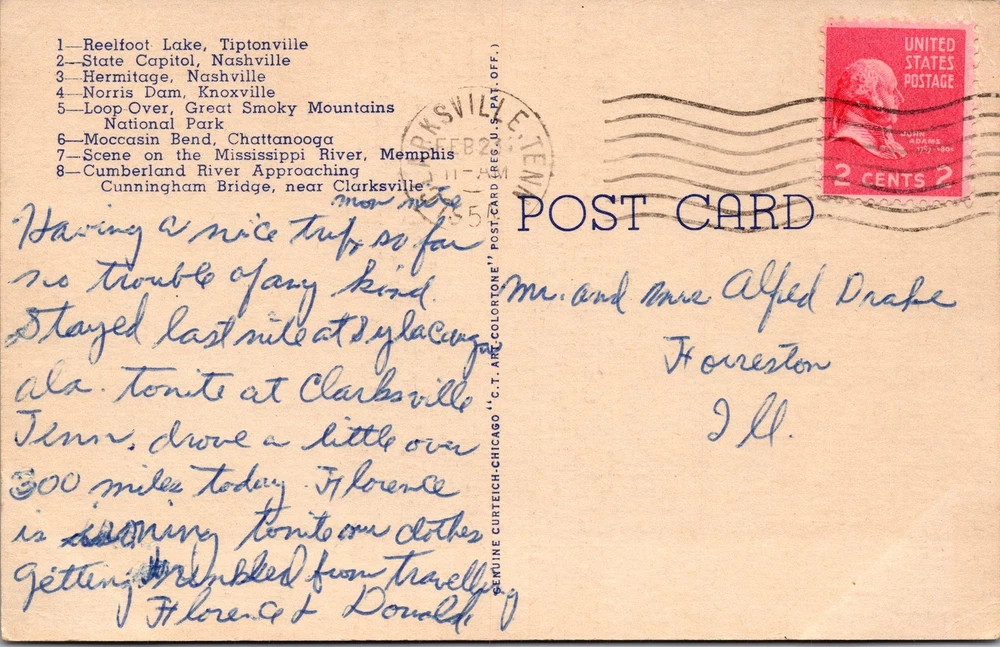 1—Reelfoot Lake, Tiptonville
2—State Capitol, Nashville
3—Hermitage, Nashville
4—Norris Dam, Knoxville
5—Loop-Over, Great Smoky Mountains
National Park
6—Moccasin Bend, Chattanooga
7—Scene on the Mississippi River, Memphis
8—Cumberland River Approaching
Cunningham Bridge, near Clarksville
mon nite
Having a nice trip, so far
no trouble of any kind.
Stayed last nite at Sylacauga
Ala. tonite at Clarksville
Tenn. drove a little over
300 miles today. Florence
is ironing tonite our clothes
getting wrinkled from travelling
Florence & Donald
GENUINE CURTEICH-CHICAGO "C.T. ART-COLORTONE" POST CARD (REG. U.S. PAT. OFF.)
CLARKSVILLE, TENN.
FEB 23
11-AM
UNITED
STATES
POSTAGE
JOHN
ADAMS
1797-1801
2 CENTS 2
POST CARD
Mr. and Mrs Alfred Drake
Forreston
Ill.